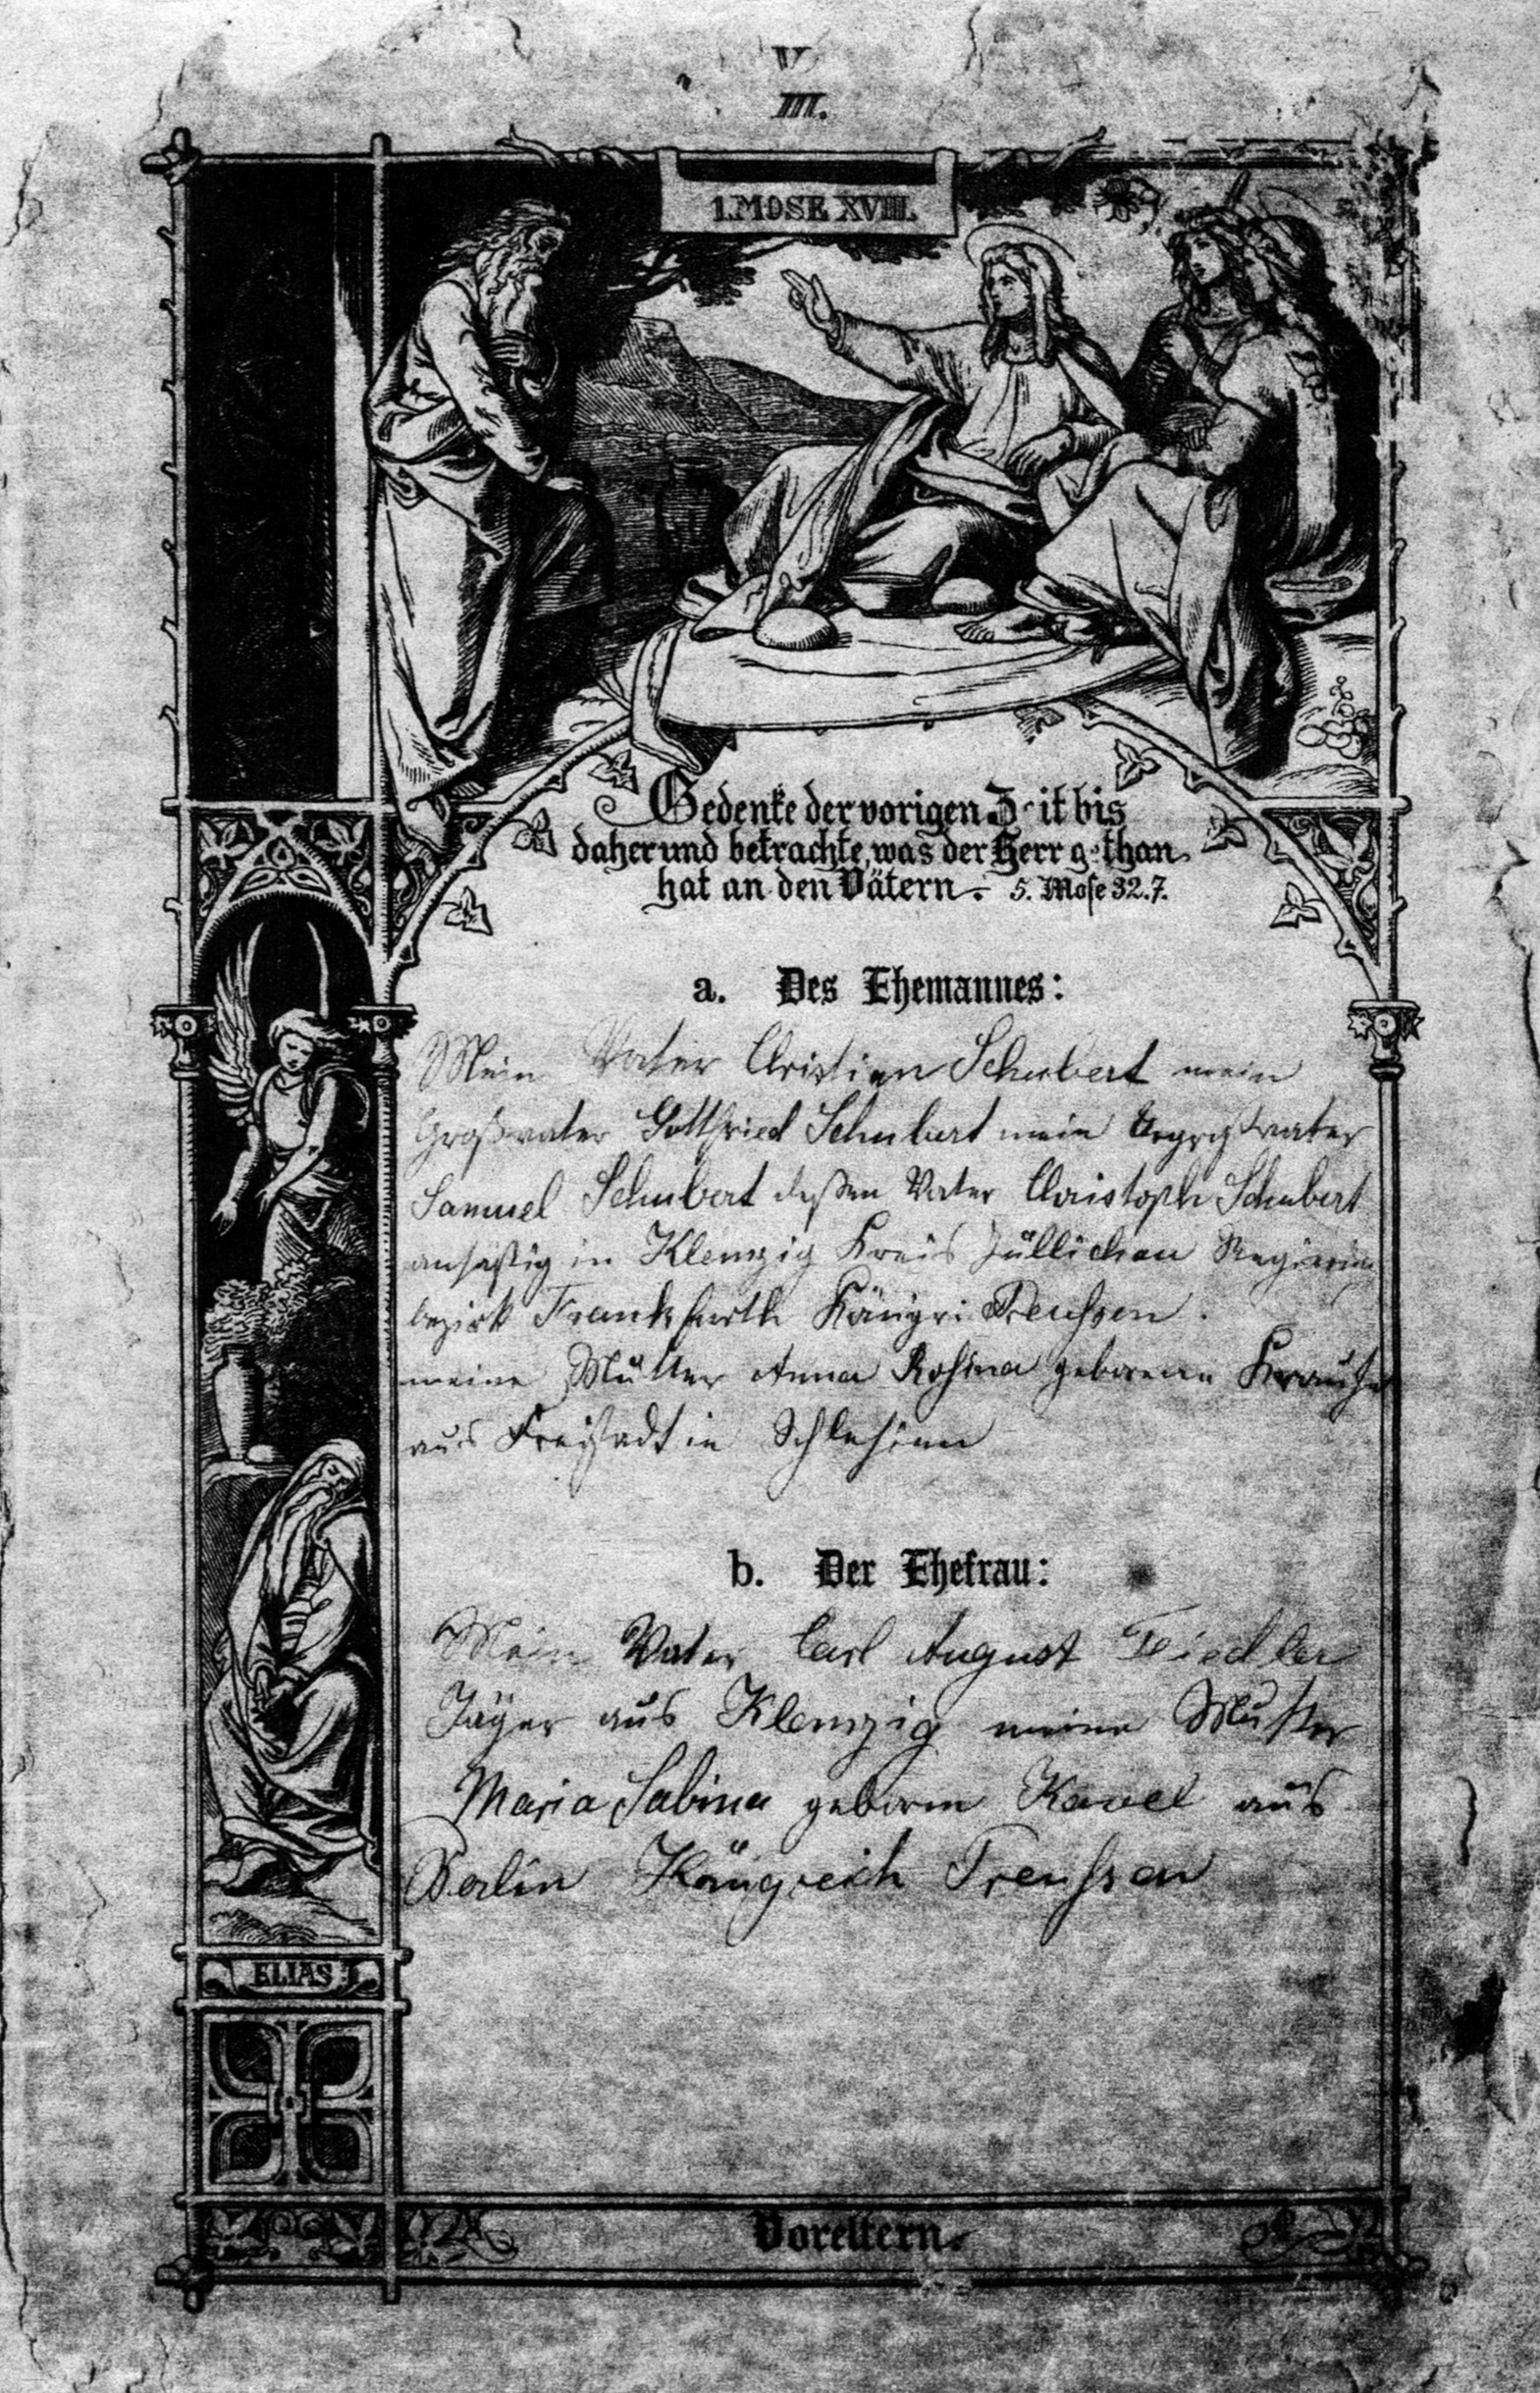 V
III.
1. MOSE XVIII.
Gedenke der vorigen Zeit bis
daher und betrachte, was der Herr gethan
hat an den Vätern. 5. Mose 32.7.
a. Des Ehemannes:
Mein Vater Christian Schubert mein
Großvater Gottfried Schubert mein Urgroßvater
Samuel Schubert deßen Vater Christoph Schubert
ansäßig in Klemzig Kreis Züllichau Regierung
bezirk Frankfurth Königr: Preußen.
meine Mutter Anna Rosina geborene Krause
aus Freistadt in Schlesien
b. Der Ehefrau:
Mein Vater Carl August Fiedler
Jäger aus Klemzig meine Mutter
Maria Sabina geboren Kavel aus
Berlin Königreich Preußen
ELIAS
Voreltern.